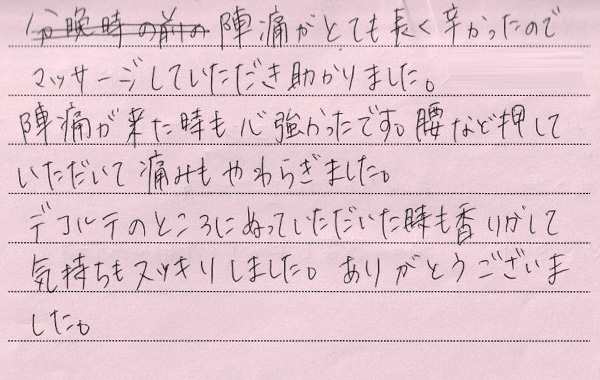 分晩時の前の 陣痛がとても長く辛かったので
マッサージしていただき助かりました。
陣痛が来た時も心強かったです。腰など押して
いただいて痛みもやわらぎました。
デコルテのところにぬっていただいた時も香りがして
気持ちもスッキリしました。ありがとうございま
した。